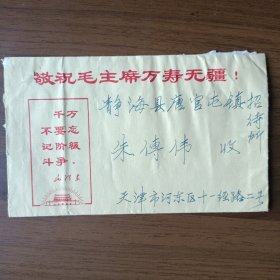 敬祝毛主席万寿无疆！
千万
不要忘
记阶级
斗争。
毛泽东
静海县唐官屯镇招待所
朱傅伟 收
天津市河东区十一经路二号